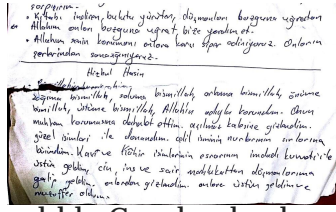 sarpıyorum.
• Kitabı indiren, bulutu yürüten, düşmanları bozguna uğratan
Allahım onları bozguna uğrat, bize yardım et.
• Allahım senin korumanı onlara karşı siper ediniyoruz. Onların
şerlerinden sana sığınıyoruz.
Hizbul Hasin
Bismillahirrahmanirrahim
Sağıma bismillah, soluma bismillah, arkama bismillah, önüme
bismillah, üstüme bismillah, Allahın adıyla korundum. Onun
muhkem korumasına dahil oldum. açılmaz kalesine gizlendim.
güzel isimleri ile donandım. celil isminin nurlarının sırlarına
büründüm. Kavi ve Kahir isimlerinin esrarının imdadı kuvvetiyle
üstün geldim. cin, ins ve sair mahlukattan düşmanlarıma
galip geldim. onlardan gizlendim. onlara üstün geldim ve
muzaffer oldum.